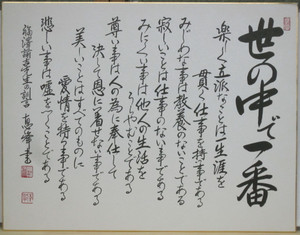 世の中で一番
楽しく立派なことは生涯を
貫く仕事を持つ事である
みじめな事は教養のないことである
寂しいことは仕事のない事である
みにくい事は他人の生活を
うらやむことである
尊い事は人の為に奉仕して
決して恩に着せない事である
美しいことはすべてのものに
愛情を持つ事である
悲しい事は嘘をつくことである
福澤諭吉先生の訓